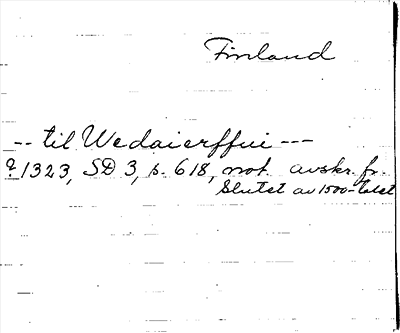 Finland
-- til Wedaierffui ---
? 1323, SD 3, s. 618, not. avskr. fr.
Slutet av 1500-talet